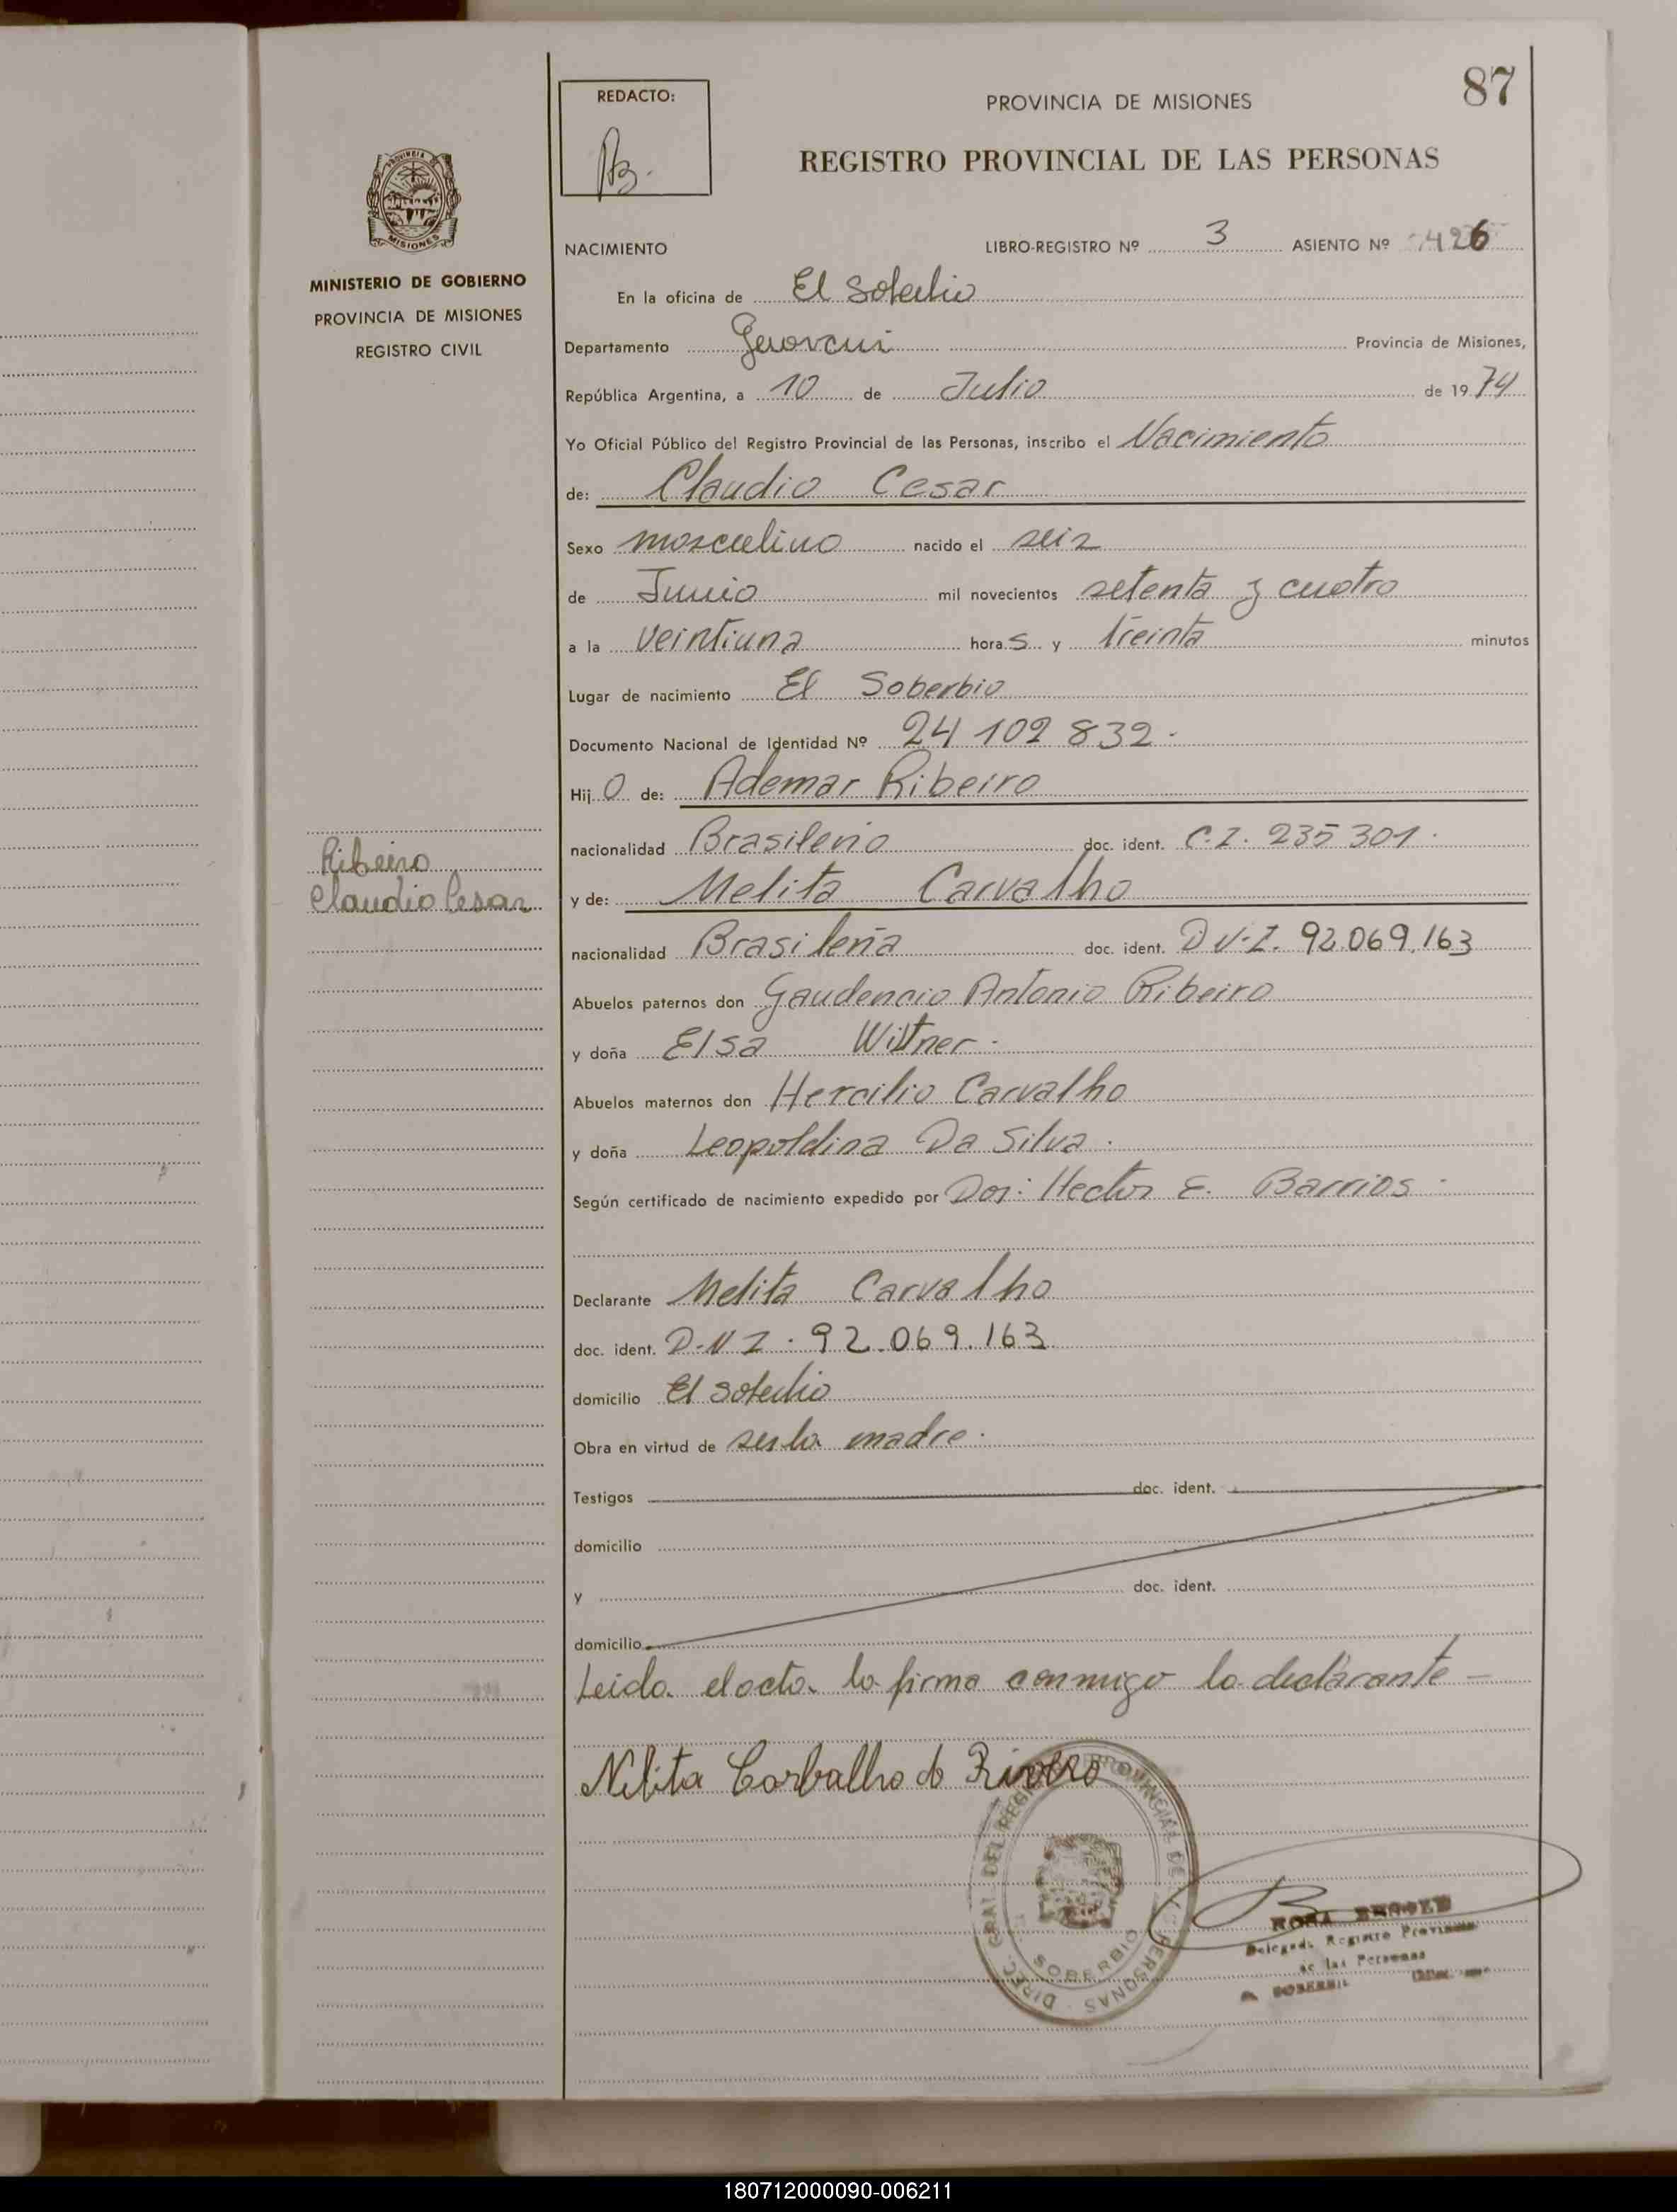 87
REDACTO:
PROVINCIA DE MISIONES
REGISTRO PROVINCIAL DE LAS PERSONAS
NACIMIENTO LIBRO-REGISTRO Nº 3 ASIENTO Nº 426
MINISTERIO DE GOBIERNO
PROVINCIA DE MISIONES
REGISTRO CIVIL
En la oficina de El Soberbio
Departamento Guaraní Provincia de Misiones,
República Argentina, a 10 de Julio de 1974
Yo Oficial Público del Registro Provincial de las Personas, inscribo el Nacimiento
de: Claudio Cesar
Sexo masculino nacido el seis
de Junio mil novecientos setenta y cuatro
a la veintiuna horas y treinta minutos
Lugar de nacimiento El Soberbio
Documento Nacional de Identidad Nº 24 102 832.
Hijo de: Ademar Ribeiro
nacionalidad Brasileño doc. ident. C.I. 235 301.
Ribeiro
Claudio Cesar
y de: Melita Carvalho
nacionalidad Brasileña doc. ident. D.N.I. 92.069.163
Abuelos paternos don Gaudencio Antonio Ribeiro
y doña Elsa Wittner.
Abuelos maternos don Hercilio Carvalho
y doña Leopoldina Da Silva.
Según certificado de nacimiento expedido por Don: Hector E. Barrios.
Declarante Melita Carvalho
doc. ident. D.N.I. 92.069.163
domicilio El Soberbio
Obra en virtud de ser la madre.
Testigos doc. ident.
domicilio
y doc. ident.
domicilio
Leida el acta la firma conmigo la declarante -
Nelita Carballho de Rivero
DIREC. GRAL DEL REGISTRO PROVINCIAL DE LAS PERSONAS
SOBERBIO
ROSA
Delegada Registro Provincial
de las Personas
EL SOBERBIO
180712000090-006211